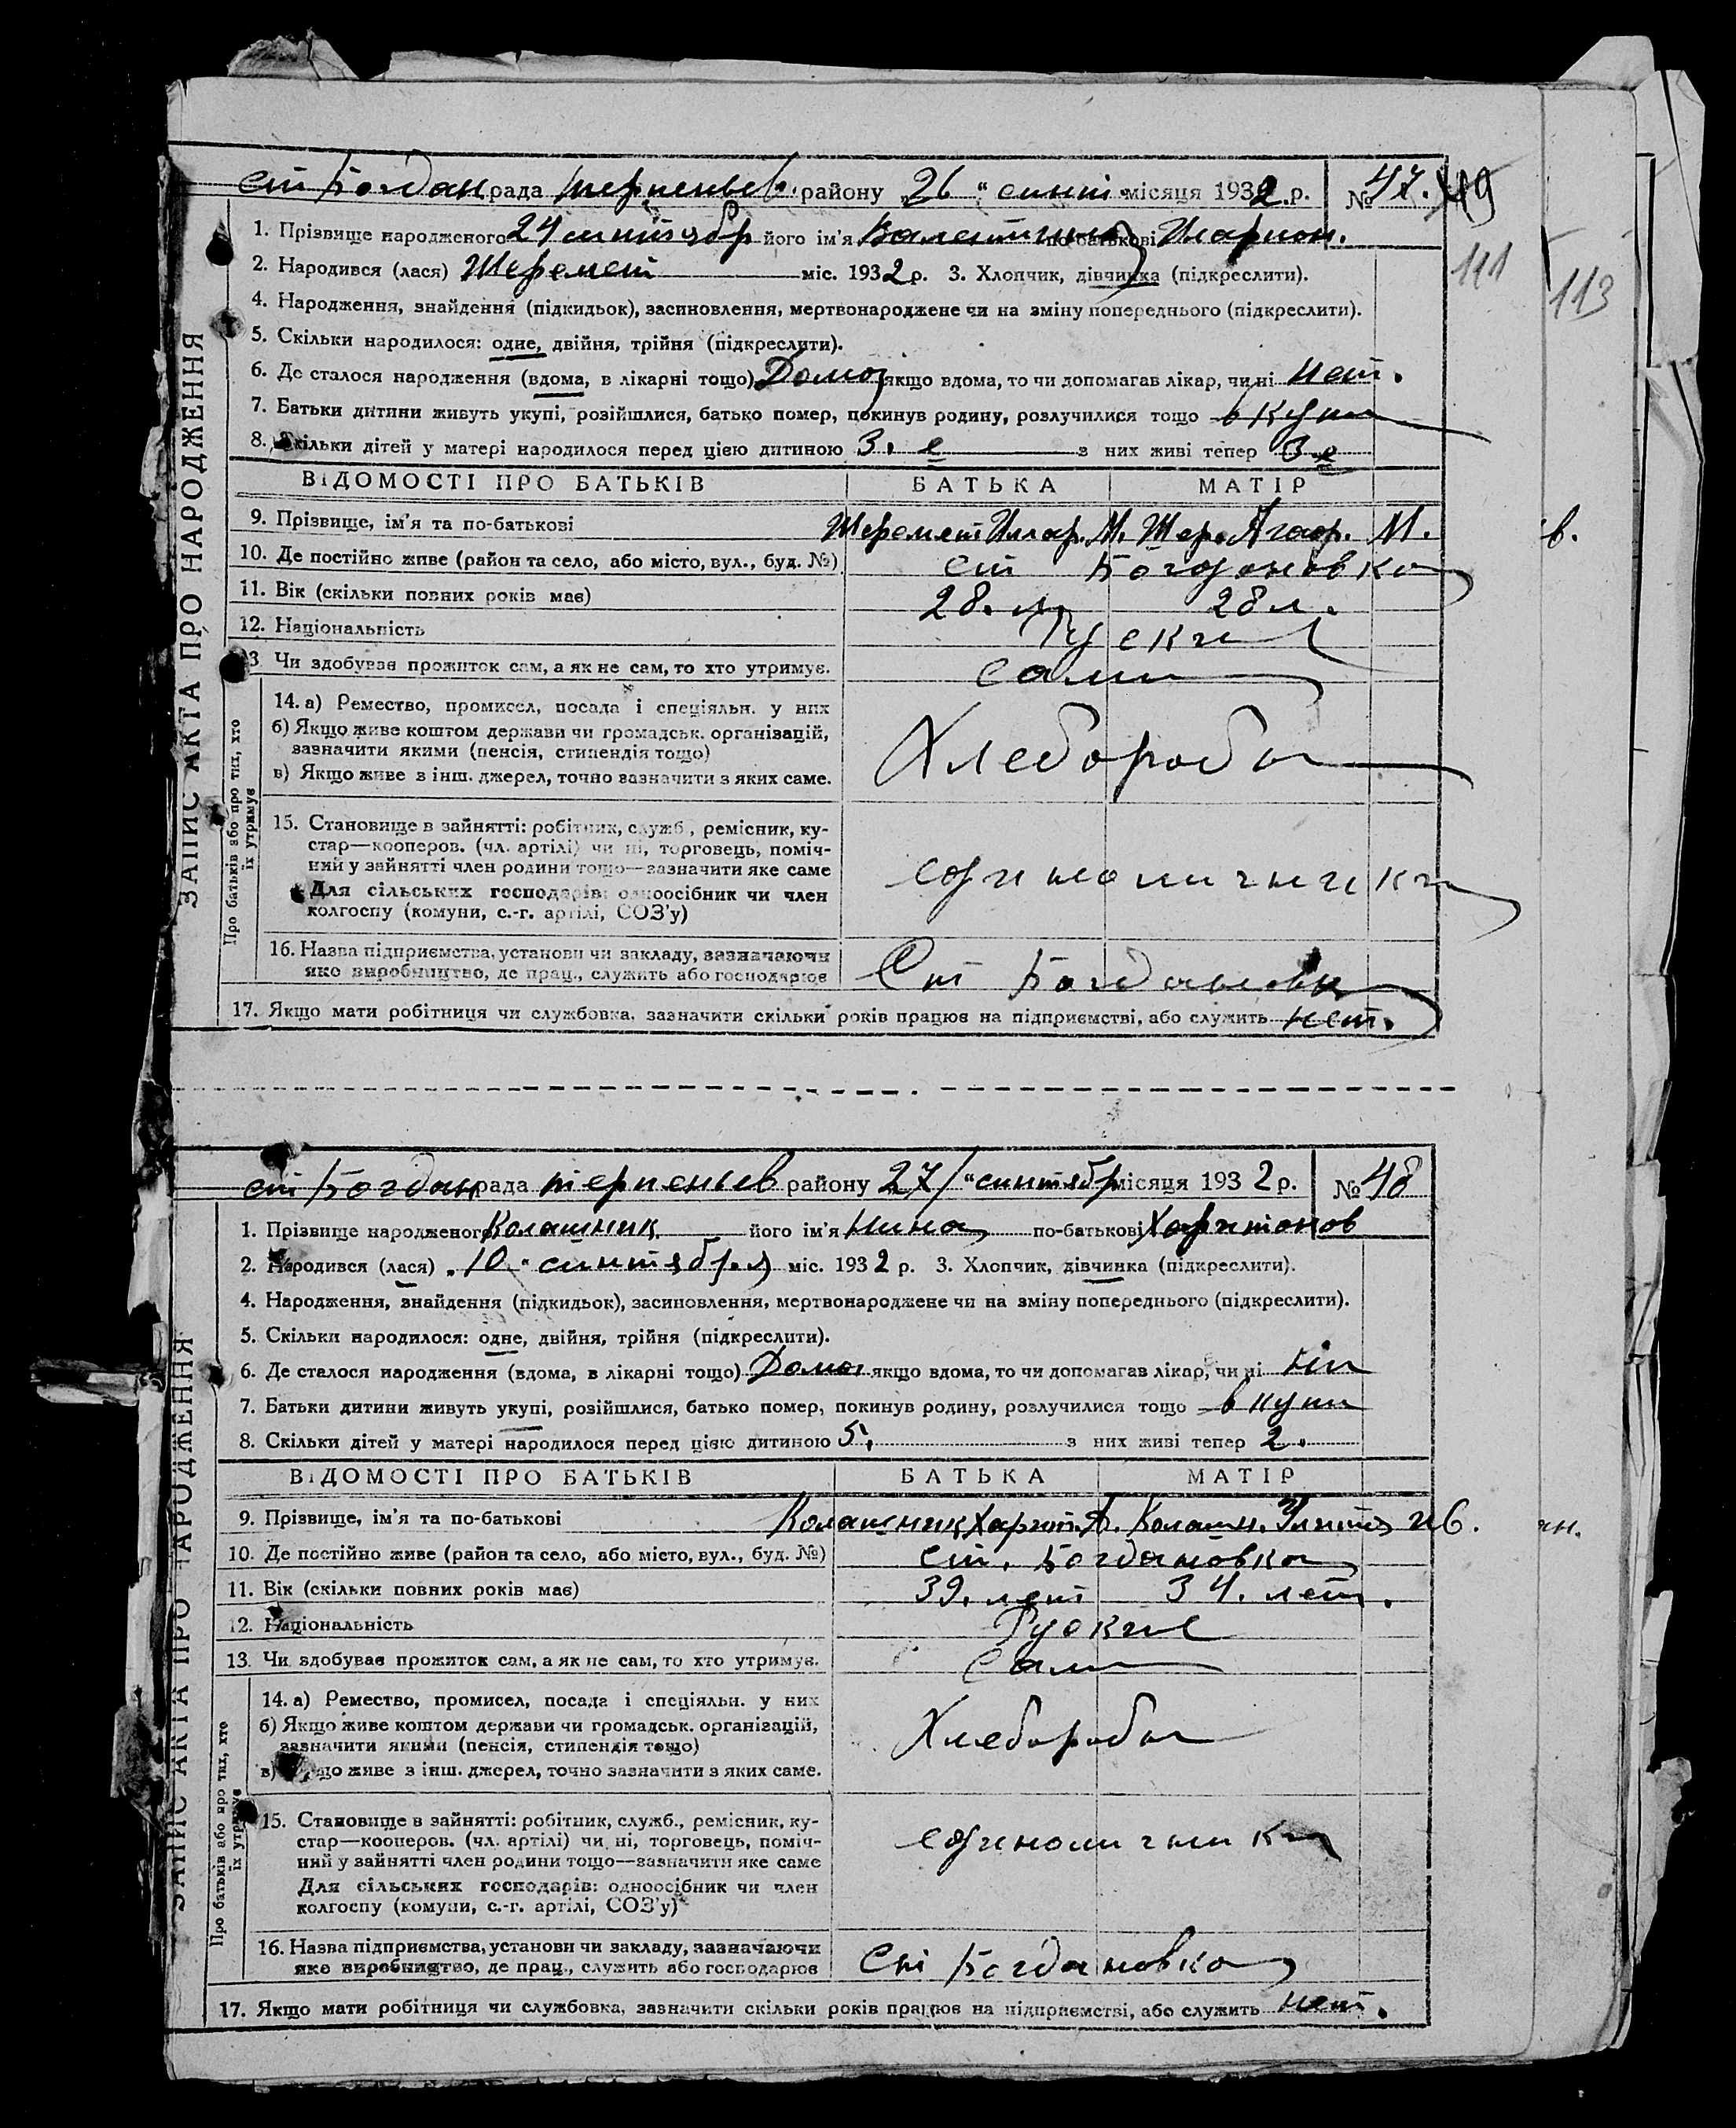 ст Богдан рада терпеньев. району „26“ сент місяця 1932.р. № 47. 49
1. Прізвище народженого 24 синтебр його ім'я Валентина по-батькові Иларион.
111
113
2. Народився (лася) Шеремет міс. 1932 р. 3. Хлопчик, дівчинка (підкреслити).
4. Народження, знайдення (підкидьок), засиновлення, мертвонароджене чи на зміну попереднього (підкреслити).
5. Скільки народилося: одне, двійня, трійня (підкреслити).
6. Де сталося народження (вдома, в лікарні тощо) Дома якщо вдома, то чи допомагав лікар, чи ні нет.
7. Батьки дитини живуть укупі, розійшлися, батько помер, покинув родину, розлучилися тощо вкупи
8. Скільки дітей у матері народилося перед цією дитиною 3.е з них живі тепер 3е
ЗАПИС АКТА ПРО НАРОДЖЕННЯ
ВІДОМОСТІ ПРО БАТЬКІВ БАТЬКА МАТІР
9. Прізвище, ім'я та по-батькові Шеремет Илар. М. Шер. Агаф. М.
в.
10. Де постійно живе (район та село, або місто, вул., буд. №) ст Богдановка
11. Вік (скільки повних років має) 28.л. 28л.
12. Національність Руски
13. Чи здобуває прожиток сам, а як не сам, то хто утримує. сами
Про батьків або про тих, хто їх утримує
14. а) Ремество, промисел, посада і спеціяльн. у них
б) Якщо живе коштом держави чи громадськ. організацій,
зазначити якими (пенсія, стипендія тощо)
Хлеборобы
в) Якщо живе з інш. джерел, точно зазначити з яких саме.
15. Становище в зайнятті: робітник, служб., ремісник, ку-
стар—кооперов. (чл. артілі) чи ні, торговець, поміч-
ний у зайнятті член родини тощо—зазначити яке саме
единоличники
Для сільських господарів: одноосібник чи член
колгоспу (комуни, с.-г. артілі, СОЗ'у)
16. Назва підприємства, установи чи закладу, зазначаючи
яке виробництво, де прац., служить або господарює
Ст Богдановка
17. Якщо мати робітниця чи службовка, зазначити скільки років працює на підприємстві, або служить нет.
ст Богдан рада терпеньев району 27/“синтябр місяця 1932 р. № 48
1. Прізвище народженого Колашник його ім'я Нина по-батькові Харитонов
2. Народився (лася) „10“ синтября міс. 1932 р. 3. Хлопчик, дівчинка (підкреслити).
4. Народження, знайдення (підкидьок), засиновлення, мертвонароджене чи на зміну попереднього (підкреслити).
5. Скільки народилося: одне, двійня, трійня (підкреслити).
6. Де сталося народження (вдома, в лікарні тощо) Дома якщо вдома, то чи допомагав лікар, чи ні
7. Батьки дитини живуть укупі, розійшлися, батько помер, покинув родину, розлучилися тощо вкупи
8. Скільки дітей у матері народилося перед цією дитиною 5. з них живі тепер 2.
ЗАПИС АКТА ПРО НАРОДЖЕННЯ
ВІДОМОСТІ ПРО БАТЬКІВ БАТЬКА МАТІР
9. Прізвище, ім'я та по-батькові Колашник Харит. А. Колашн.
10. Де постійно живе (район та село, або місто, вул., буд. №) ст. Богдановка
11. Вік (скільки повних років має) 39. лет 34. лет.
12. Національність Руские
13. Чи здобуває прожиток сам, а як не сам, то хто утримує. Сами
Про батьків або про тих, хто їх утримує
14. а) Ремество, промисел, посада і спеціяльн. у них
б) Якщо живе коштом держави чи громадськ. організацій,
зазначити якими (пенсія, стипендія тощо)
Хлеборобы
в) Якщо живе з інш. джерел, точно зазначити з яких саме.
15. Становище в зайнятті: робітник, служб., ремісник, ку-
стар—кооперов. (чл. артілі) чи ні, торговець, поміч-
ний у зайнятті член родини тощо—зазначити яке саме
единоличники
Для сільських господарів: одноосібник чи член
колгоспу (комуни, с.-г. артілі, СОЗ'у)
16. Назва підприємства, установи чи закладу, зазначаючи
яке виробництво, де прац., служить або господарює
Ст Богдановка
17. Якщо мати робітниця чи службовка, зазначити скільки років працює на підприємстві, або служить нет.